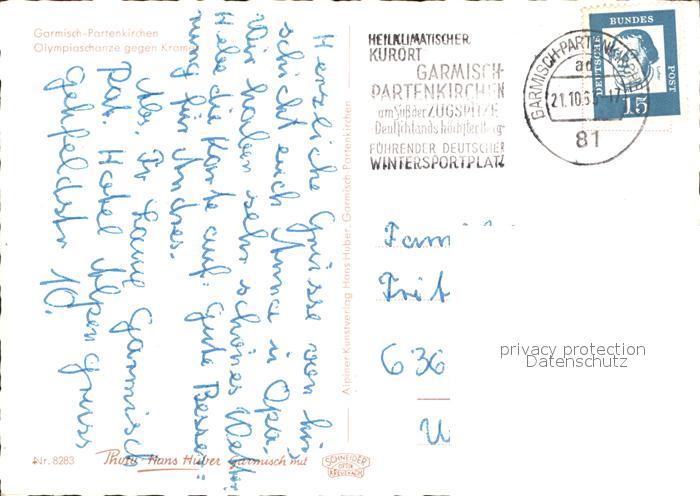 Garmisch-Partenkirchen
Olympiaschanze gegen Kramer
Herzliche Grüsse von hier
schickt euch Anna u Opa
Wir haben sehr schönes Wett
Hebe die Karte auf. Gute Besse-
rung für Andrea.
Garmisch
Part. Hotel Alpengruss
Gehfeldstr 10.
Nr. 8283
Photo Hans Huber Garmisch mit
SCHNEIDER
OPTIK
KREUZNACH
Alpiner Kunstverlag Hans Huber, Garmisch-Partenkirchen
HEILKLIMATISCHER
KURORT
GARMISCH-
PARTENKIRCHEN
am Fuß der ZUGSPITZE
Deutschlands höchster Berg
FÜHRENDER DEUTSCHER
WINTERSPORTPLATZ
GARMISCH-PARTENKIRCHEN
ad
21.10.63-17
81
DEUTSCHE
BUNDES
POST
15
Fami
Frit
636
privacy protection
Datenschutz